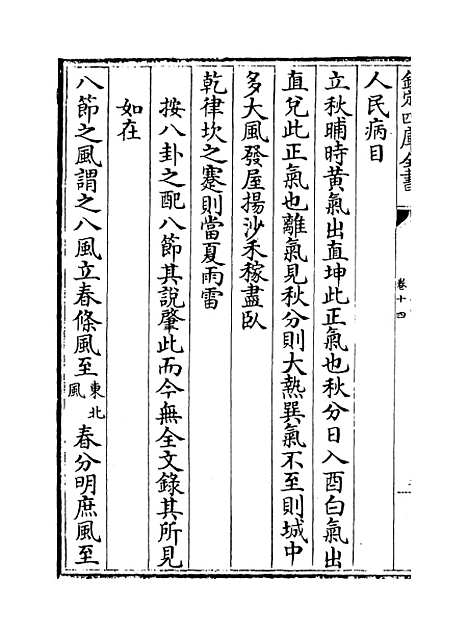 欽定四庫全書
卷十四
人民病目
立秋晡時黄氣出直坤此正氣也秋分日入酉白氣出
直兌此正氣也離氣見秋分則大熱巽氣不至則城中
多大風發屋揚沙禾稼盡臥
乾律坎之蹇則當夏雨雷
按八卦之配八節其說肇此而今無全文錄其所見
如在
八節之風謂之八風立春條風至東北風春分明庶風至